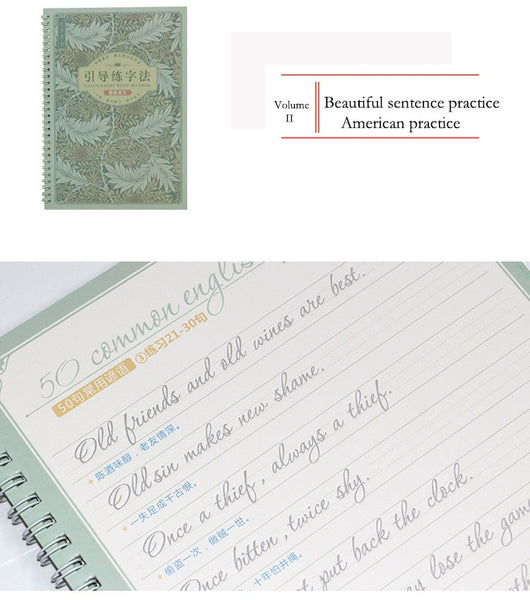 引导练字法
CALLIGRAPHY BODY METHOD
Volume
II
Beautiful sentence practice
American practice
50 common english
50句常用谚语 ③练习21-30句
Old friends and old wines are best.
陈酒味醇，老友情深。
Old sin makes new shame.
一失足成千古恨。
Once a thief, always a thief.
偷盗一次，做贼一世。
Once bitten, twice shy.
十年怕井绳。
put back the clock.
lose the game